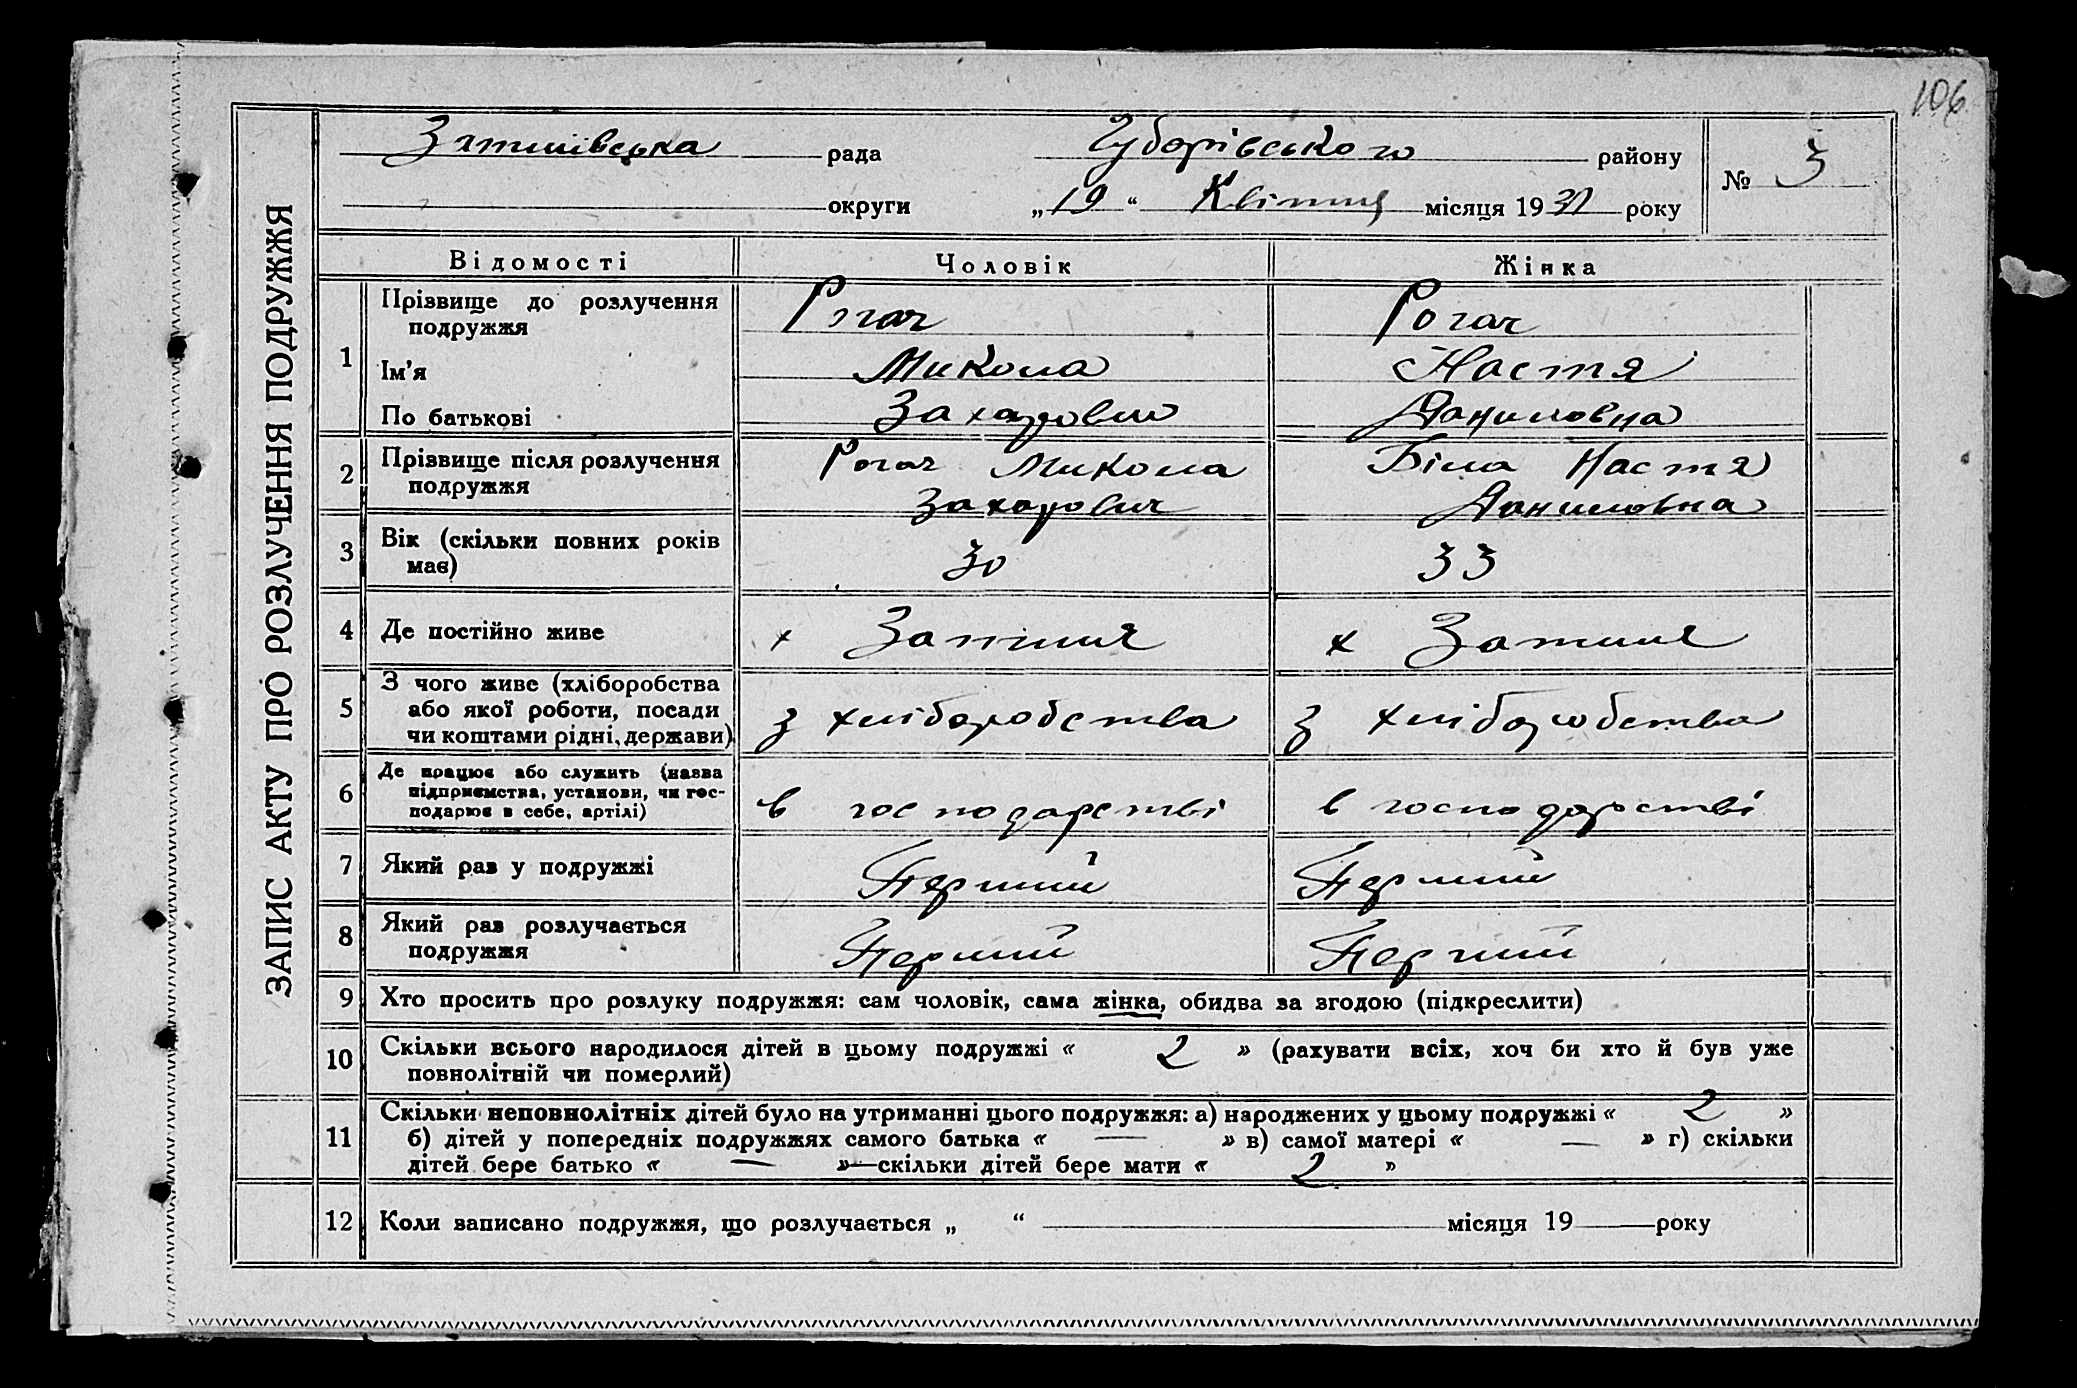 106
ЗАПИС АКТУ ПРО РОЗЛУЧЕННЯ ПОДРУЖЖЯ
Затишівська рада
Чубарівського району
№ 3
округи
„19“ Квітня місяця 1931 року
Відомості
Чоловік
Жінка
1
Прізвище до розлучення подружжя
Рогач
Рогач
Ім'я
Микола
Настя
По батькові
Захарович
Даниловна
2
Прізвище після розлучення подружжя
Рогач Микола
Захарович
Біла Настя
Даниловна
3
Вік (скільки повних років має)
30
33
4
Де постійно живе
х Затишя
х Затишя
5
З чого живе (хліборобства
або якої роботи, посади
чи коштами рідні, держави)
з хліборобства
з хліборобства
6
Де працює або служить (назва
підприємства, установи, чи гос-
подарює в себе, артілі)
в господарстві
в господарстві
7
Який раз у подружжі
Перший
Перший
8
Який раз розлучається
подружжя
Перший
Перший
9
Хто просить про розлуку подружжя: сам чоловік, сама жінка, обидва за згодою (підкреслити)
10
Скільки всього народилося дітей в цьому подружжі « 2 » (рахувати всіх, хоч би хто й був уже
повнолітній чи померлий)
11
Скільки неповнолітніх дітей було на утриманні цього подружжя: а) народжених у цьому подружжі « 2 »
б) дітей у попередніх подружжях самого батька « — » в) самої матері « — » г) скільки
дітей бере батько « — »—скільки дітей бере мати « 2 »
12
Коли записано подружжя, що розлучається „ “ місяця 19 року